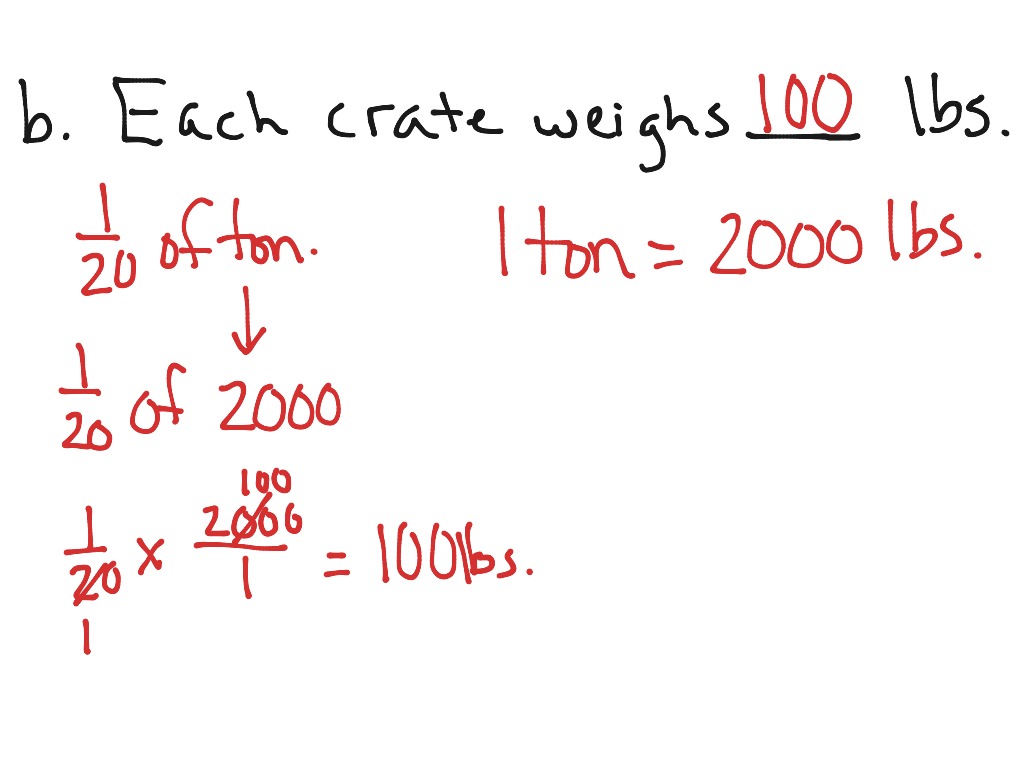 b. Each crate weighs 100 lbs.
1/20 of ton.
1 ton = 2000 lbs.
1/20 of 2000
100
1/20 x 2000/1 = 100lbs.
1